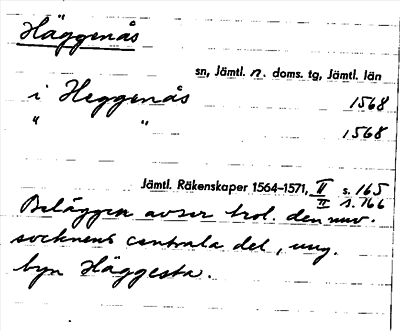 Häggenås
sn, Jämtl. n. doms. tg, Jämtl. län
i Heggenås 1568
" " 1568
Jämtl. Räkenskaper 1564-1571, II s. 165
II s. 166
Beläggen avser trol. den nuv.
socknens centrala del, ung.
byn Häggesta.